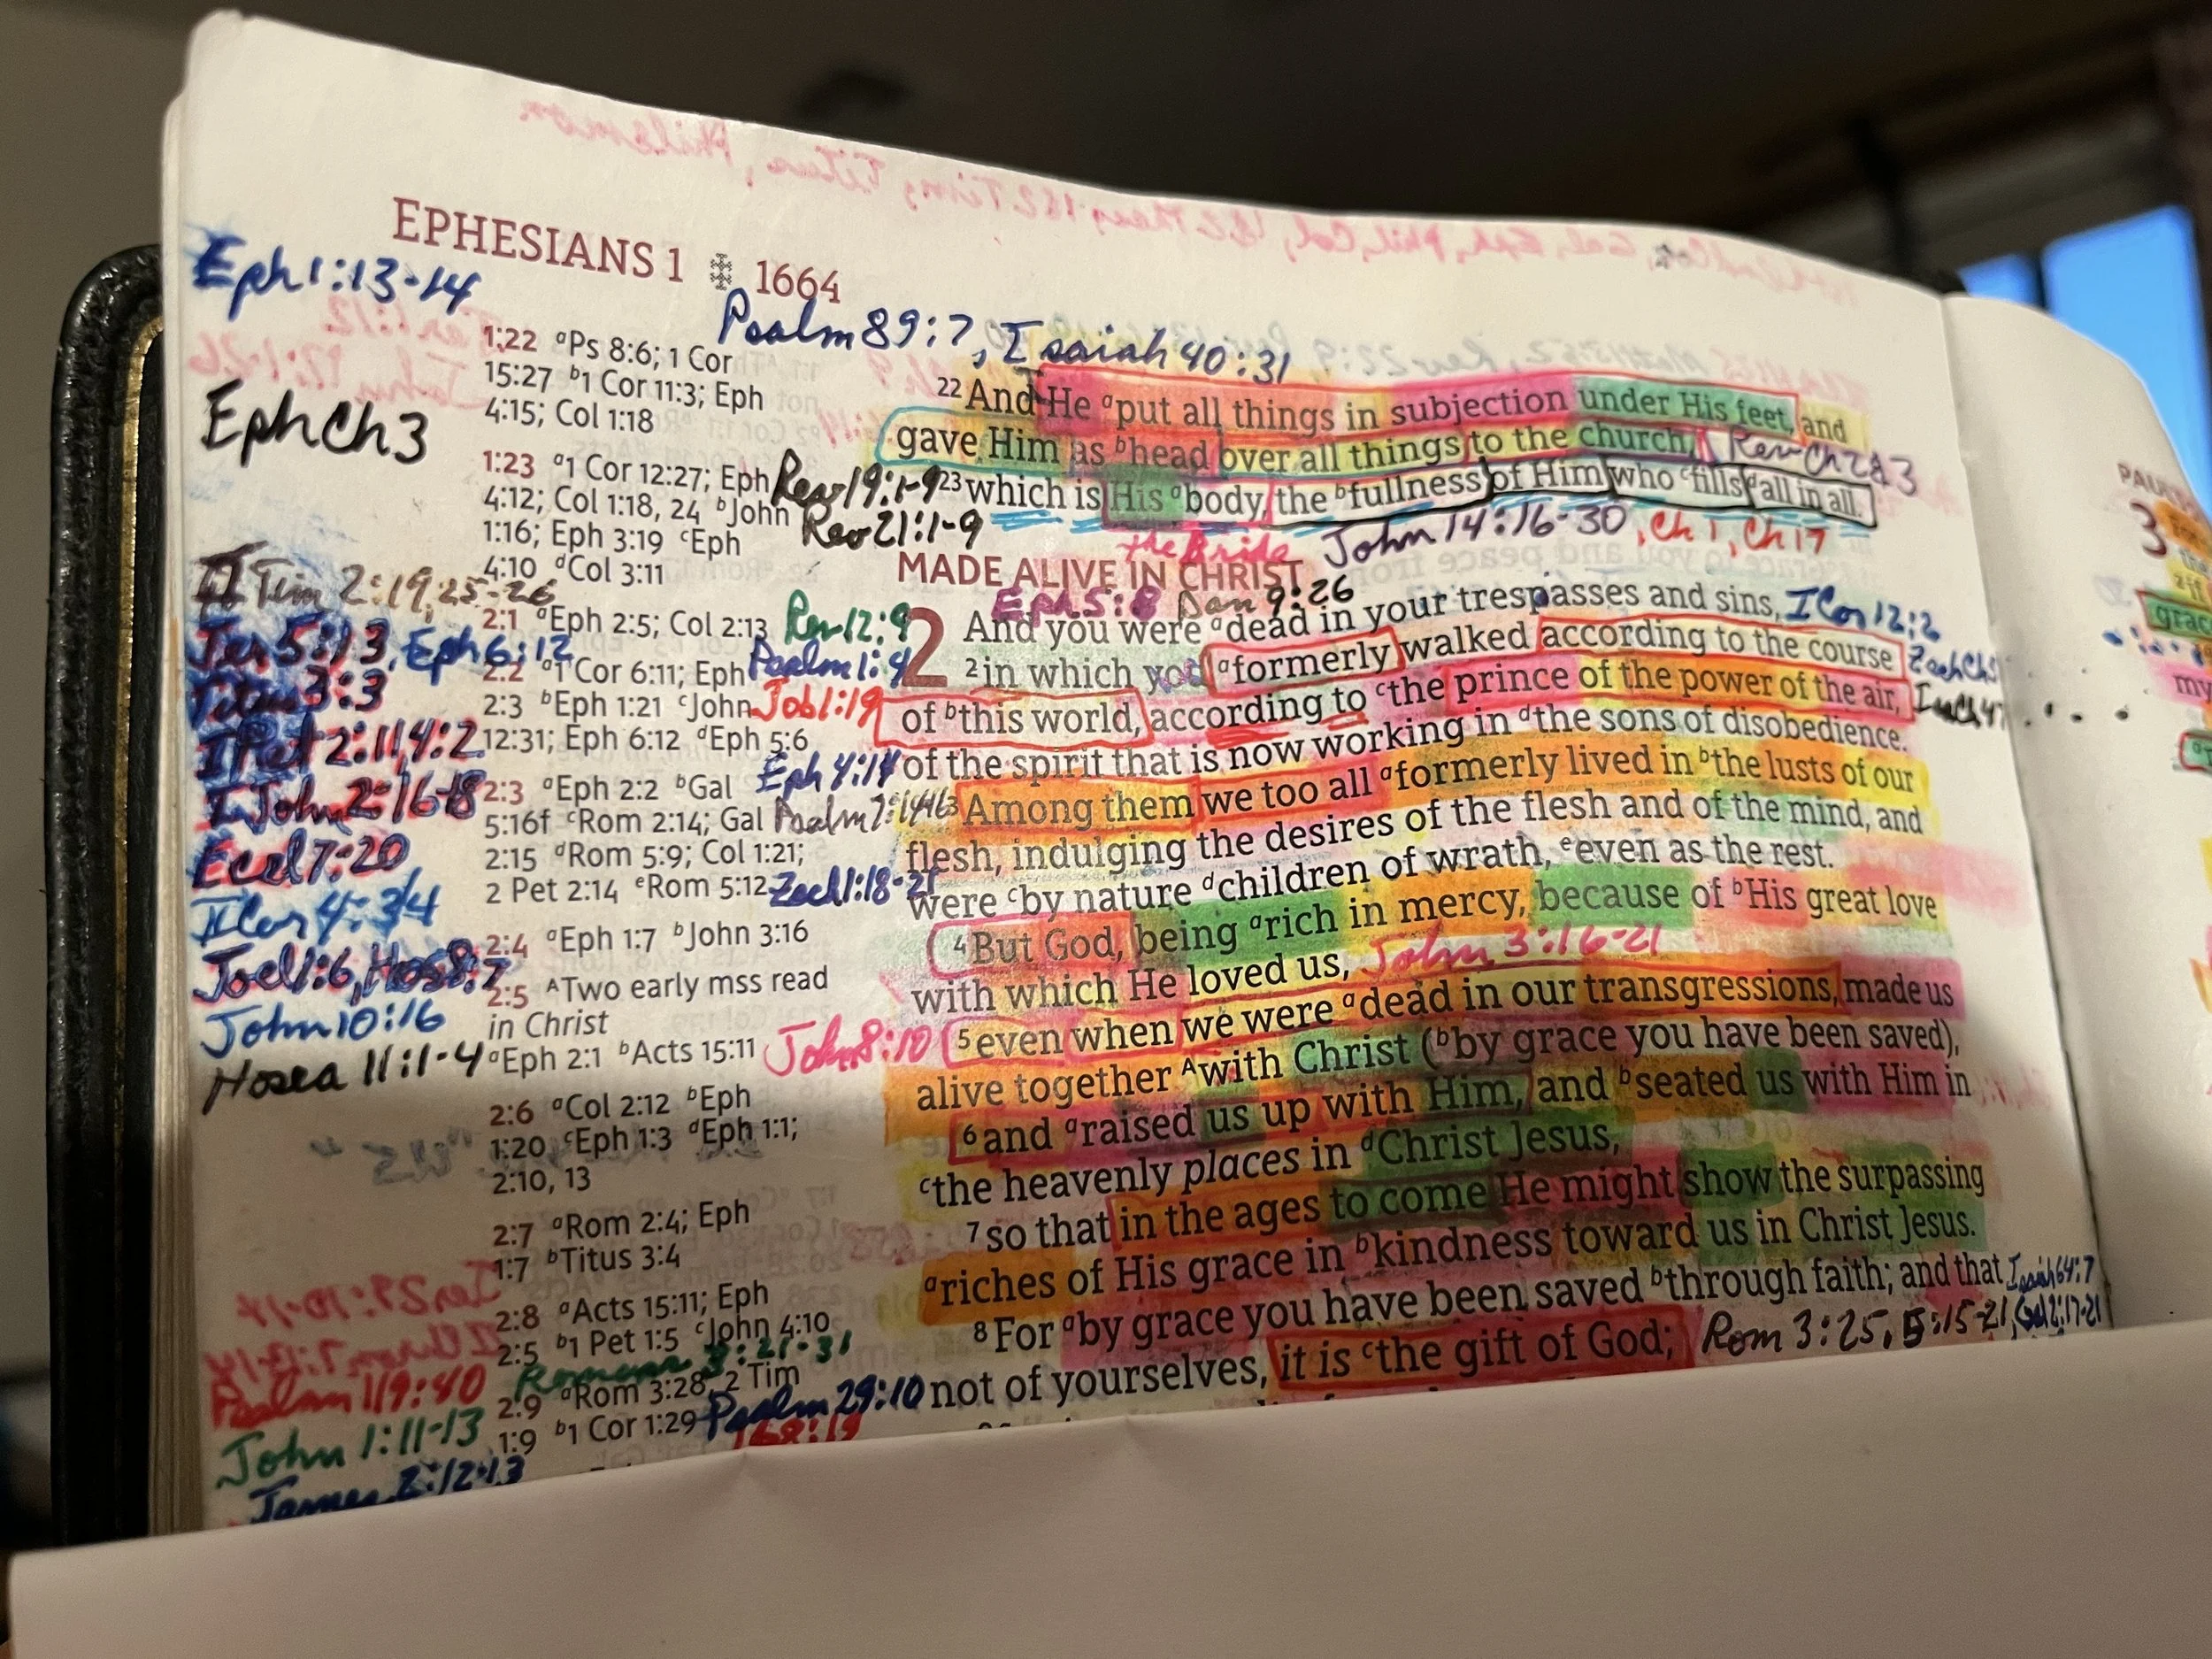 EPHESIANS 1 1664
Eph 1:13-14
Psalm 89:7, Isaiah 40:31
Eph Ch 3
1:22 aPs 8:6; 1 Cor
15:27 b1 Cor 11:3; Eph
4:15; Col 1:18
1:23 a1 Cor 12:27; Eph
4:12; Col 1:18, 24 bJohn
1:16; Eph 3:19 cEph
4:10 dCol 3:11
Rev 19:1-9
Rev 21:1-9
II Tim 2:19, 25-26
Jer 5:13, Eph 6:12
Titus 3:3
I Pet 2:11, 4:2
I John 2:16-18
Eccl 7:20
II Cor 4:3/4
Joel 1:6, Hos 8:7
John 10:16
Hosea 11:1-4
2:1 aEph 2:5; Col 2:13 Rev 12:9
2:2 a1 Cor 6:11; Eph Psalm 1:4
2:3 bEph 1:21 cJohn Job 1:19
12:31; Eph 6:12 dEph 5:6
Eph 4:14
2:3 aEph 2:2 bGal
5:16f cRom 2:14; Gal Psalm
2:15 dRom 5:9; Col 1:21;
2 Pet 2:14 eRom 5:12 Zech 1:18-21
2:4 aEph 1:7 bJohn 3:16
2:5 ATwo early mss read
in Christ
aEph 2:1 bActs 15:11 John 8:10
2:6 aCol 2:12 bEph
1:20 cEph 1:3 dEph 1:1;
2:10, 13
2:7 aRom 2:4; Eph
1:7 bTitus 3:4
2:8 aActs 15:11; Eph
2:5 b1 Pet 1:5 cJohn 4:10
Romans 3:21-31
2:9 aRom 3:28; 2 Tim
1:9 b1 Cor 1:29 Psalm 29:10
168:19
Psalm 119:40
John 1:11-13
James 2:12-13
22 And He aput all things in subjection under His feet, and
gave Him as bhead over all things to the church, Rev Ch 2&3
23 which is His abody, the bfullness of Him who cfills dall in all.
the Bride John 14:16-30, Ch 1, Ch 17
MADE ALIVE IN CHRIST
Eph 5:8 Dan 9:26
2 And you were adead in your trespasses and sins, I Cor 12:2
2 in which you aformerly walked according to the course
of bthis world, according to cthe prince of the power of the air,
of the spirit that is now working in dthe sons of disobedience.
3 Among them we too all aformerly lived in bthe lusts of our
flesh, indulging the desires of the flesh and of the mind, and
were cby nature dchildren of wrath, eeven as the rest.
4 But God, being arich in mercy, because of bHis great love
with which He loved us, John 3:16-21
5 even when we were adead in our transgressions, made us
alive together Awith Christ (bby grace you have been saved),
6 and araised us up with Him, and bseated us with Him in
cthe heavenly places in dChrist Jesus,
7 so that in the ages to come He might show the surpassing
ariches of His grace in bkindness toward us in Christ Jesus.
8 For aby grace you have been saved bthrough faith; and that Isaiah 64:7
not of yourselves, it is cthe gift of God; Rom 3:25, 5:15-21, Gal 2:17-21
3
grac
my